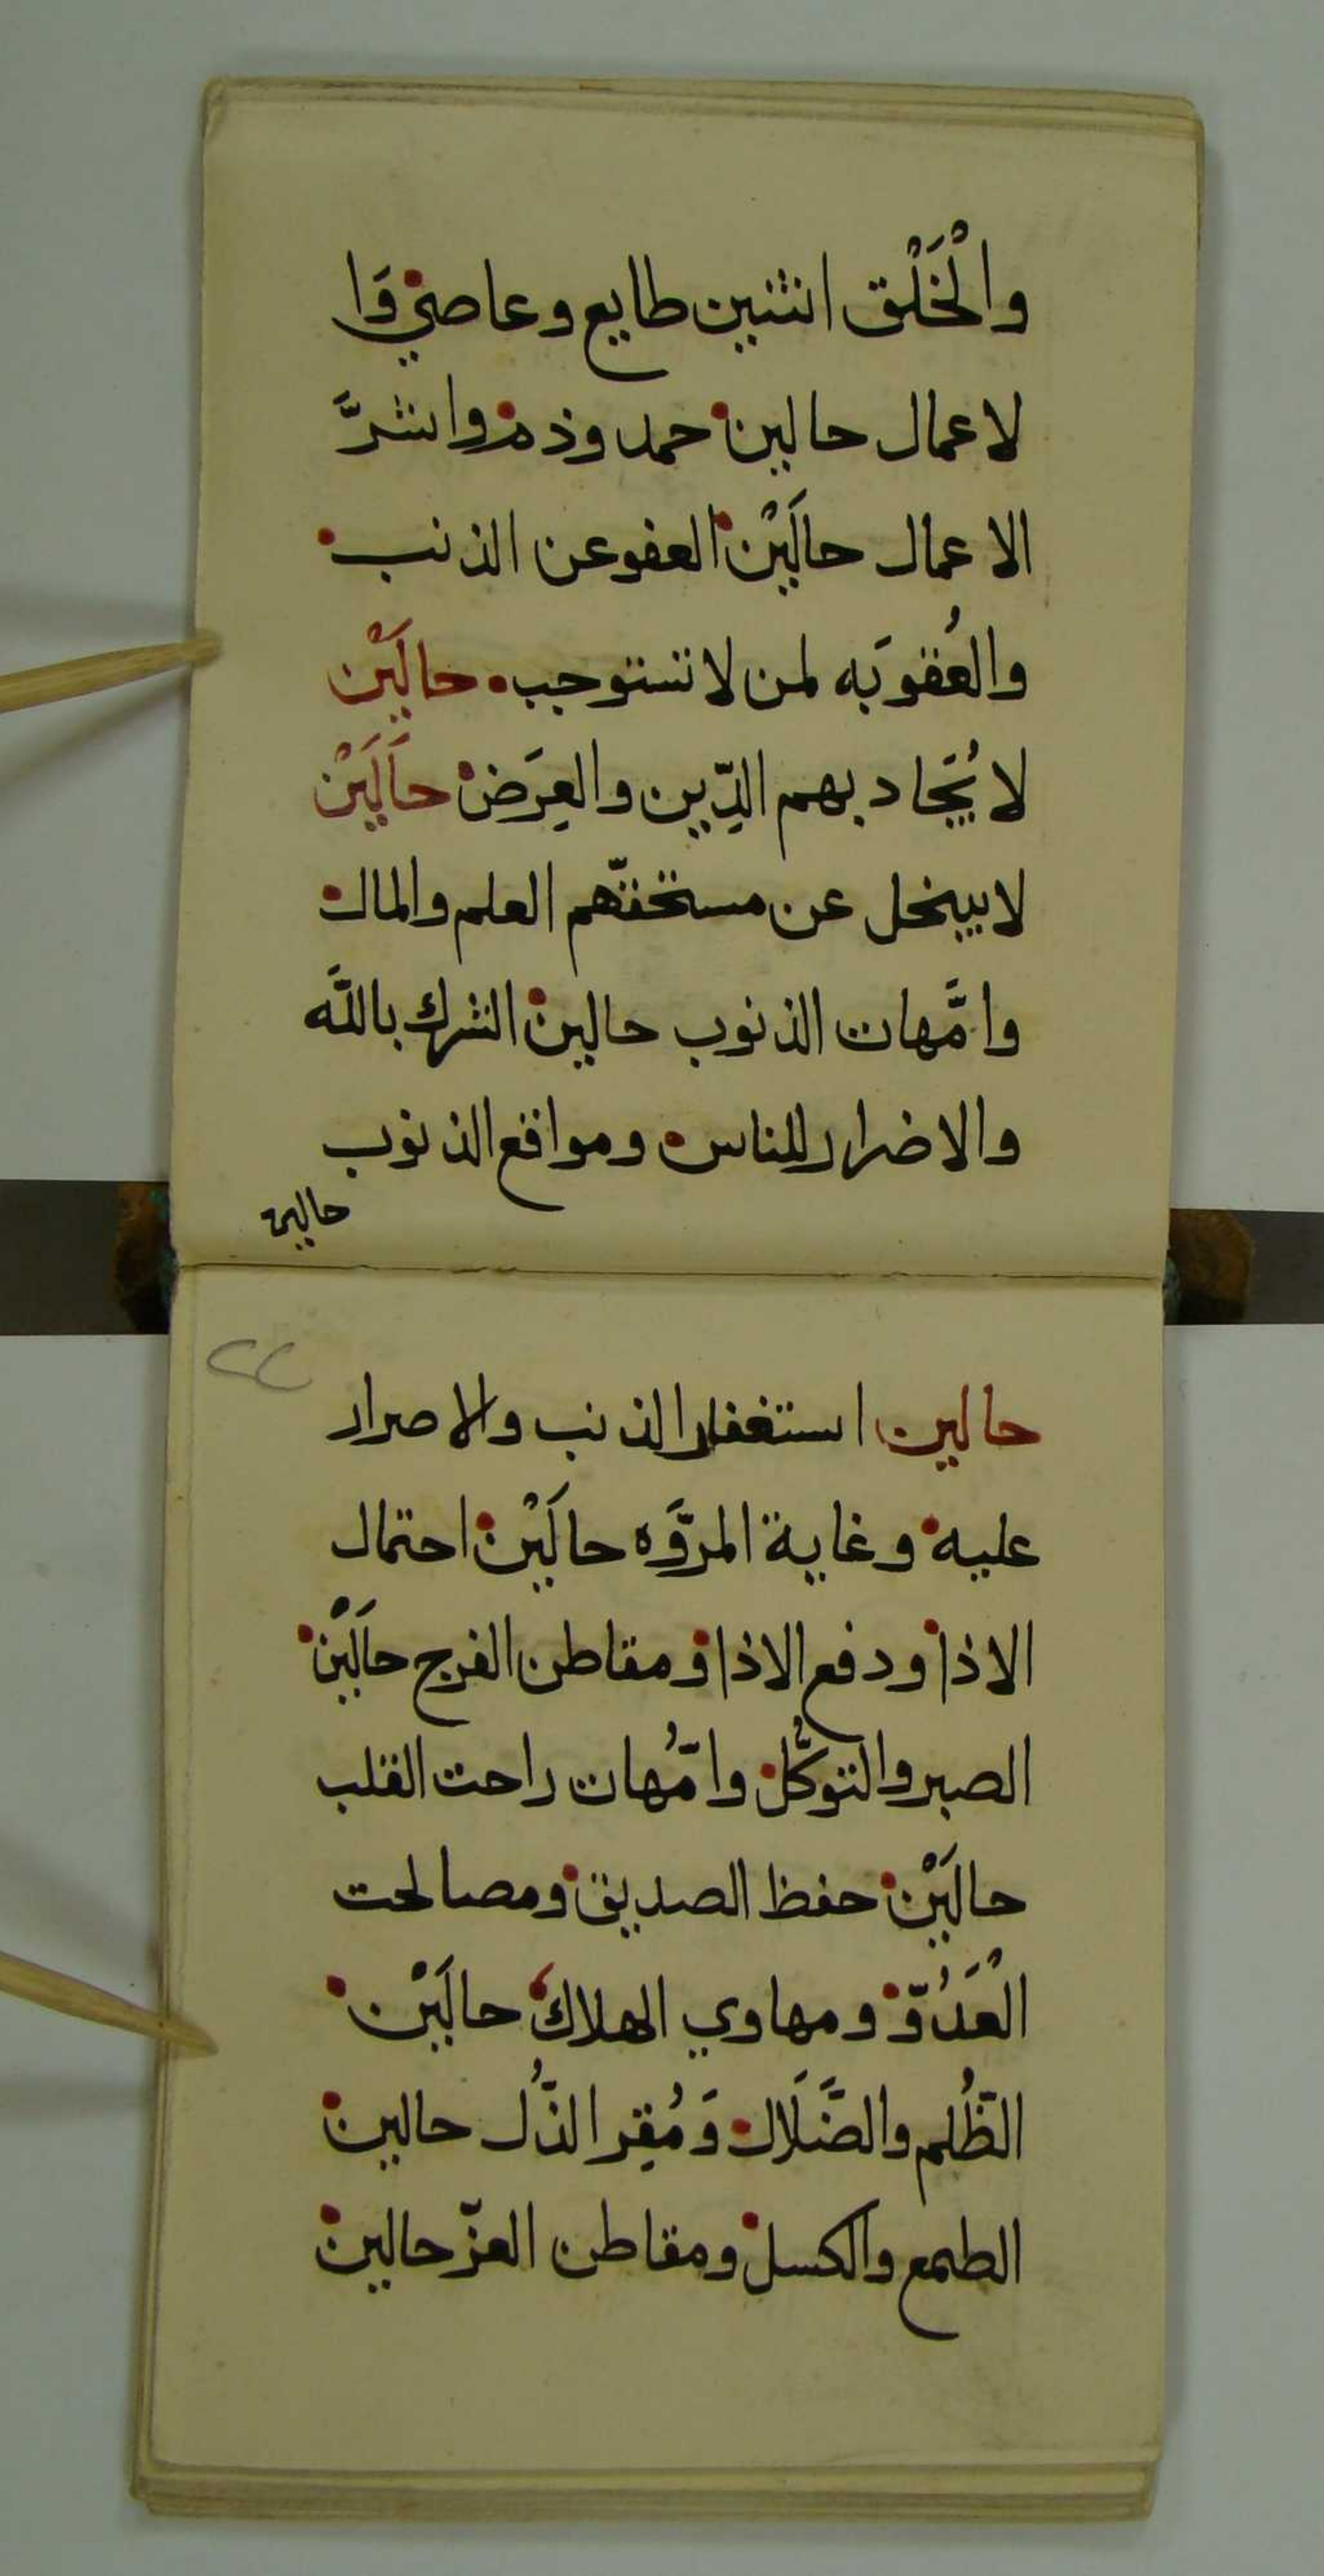 والْخَلْق اثنين طايع وعاصي وَا
لاعمال حالين حمد وذم واشرَّ
الاعمال حالَيْن العفو عن الذنب
والعُقوبَه لمن لا تستوجب حالَيْن
لا يُجاد بهم الدِّين والعِرَض حالَيْن
لا يبخل عن مستحقّهم العلم والمال
وامَّهات الذنوب حالين الشرك باللَّه
والاضرار للناس ومواقع الذنوب
حالين
٢٢
حالين استغفار الذنب والاصرار
عليه وغاية المروَّه حالَيْن احتمال
الاذا ودفع الاذا ومقاطن الفرج حالَيْن
الصبر والتوكُّل وامُّهات راحت القلب
حالَيْن حفظ الصديق ومصالحت
الْعَدُوّ ومهاوي الهلاك حالَيْن
الظُّلم والضَّلَال وَمُقِر الذُّل حالين
الطمع والكسل ومقاطن العزّ حالين